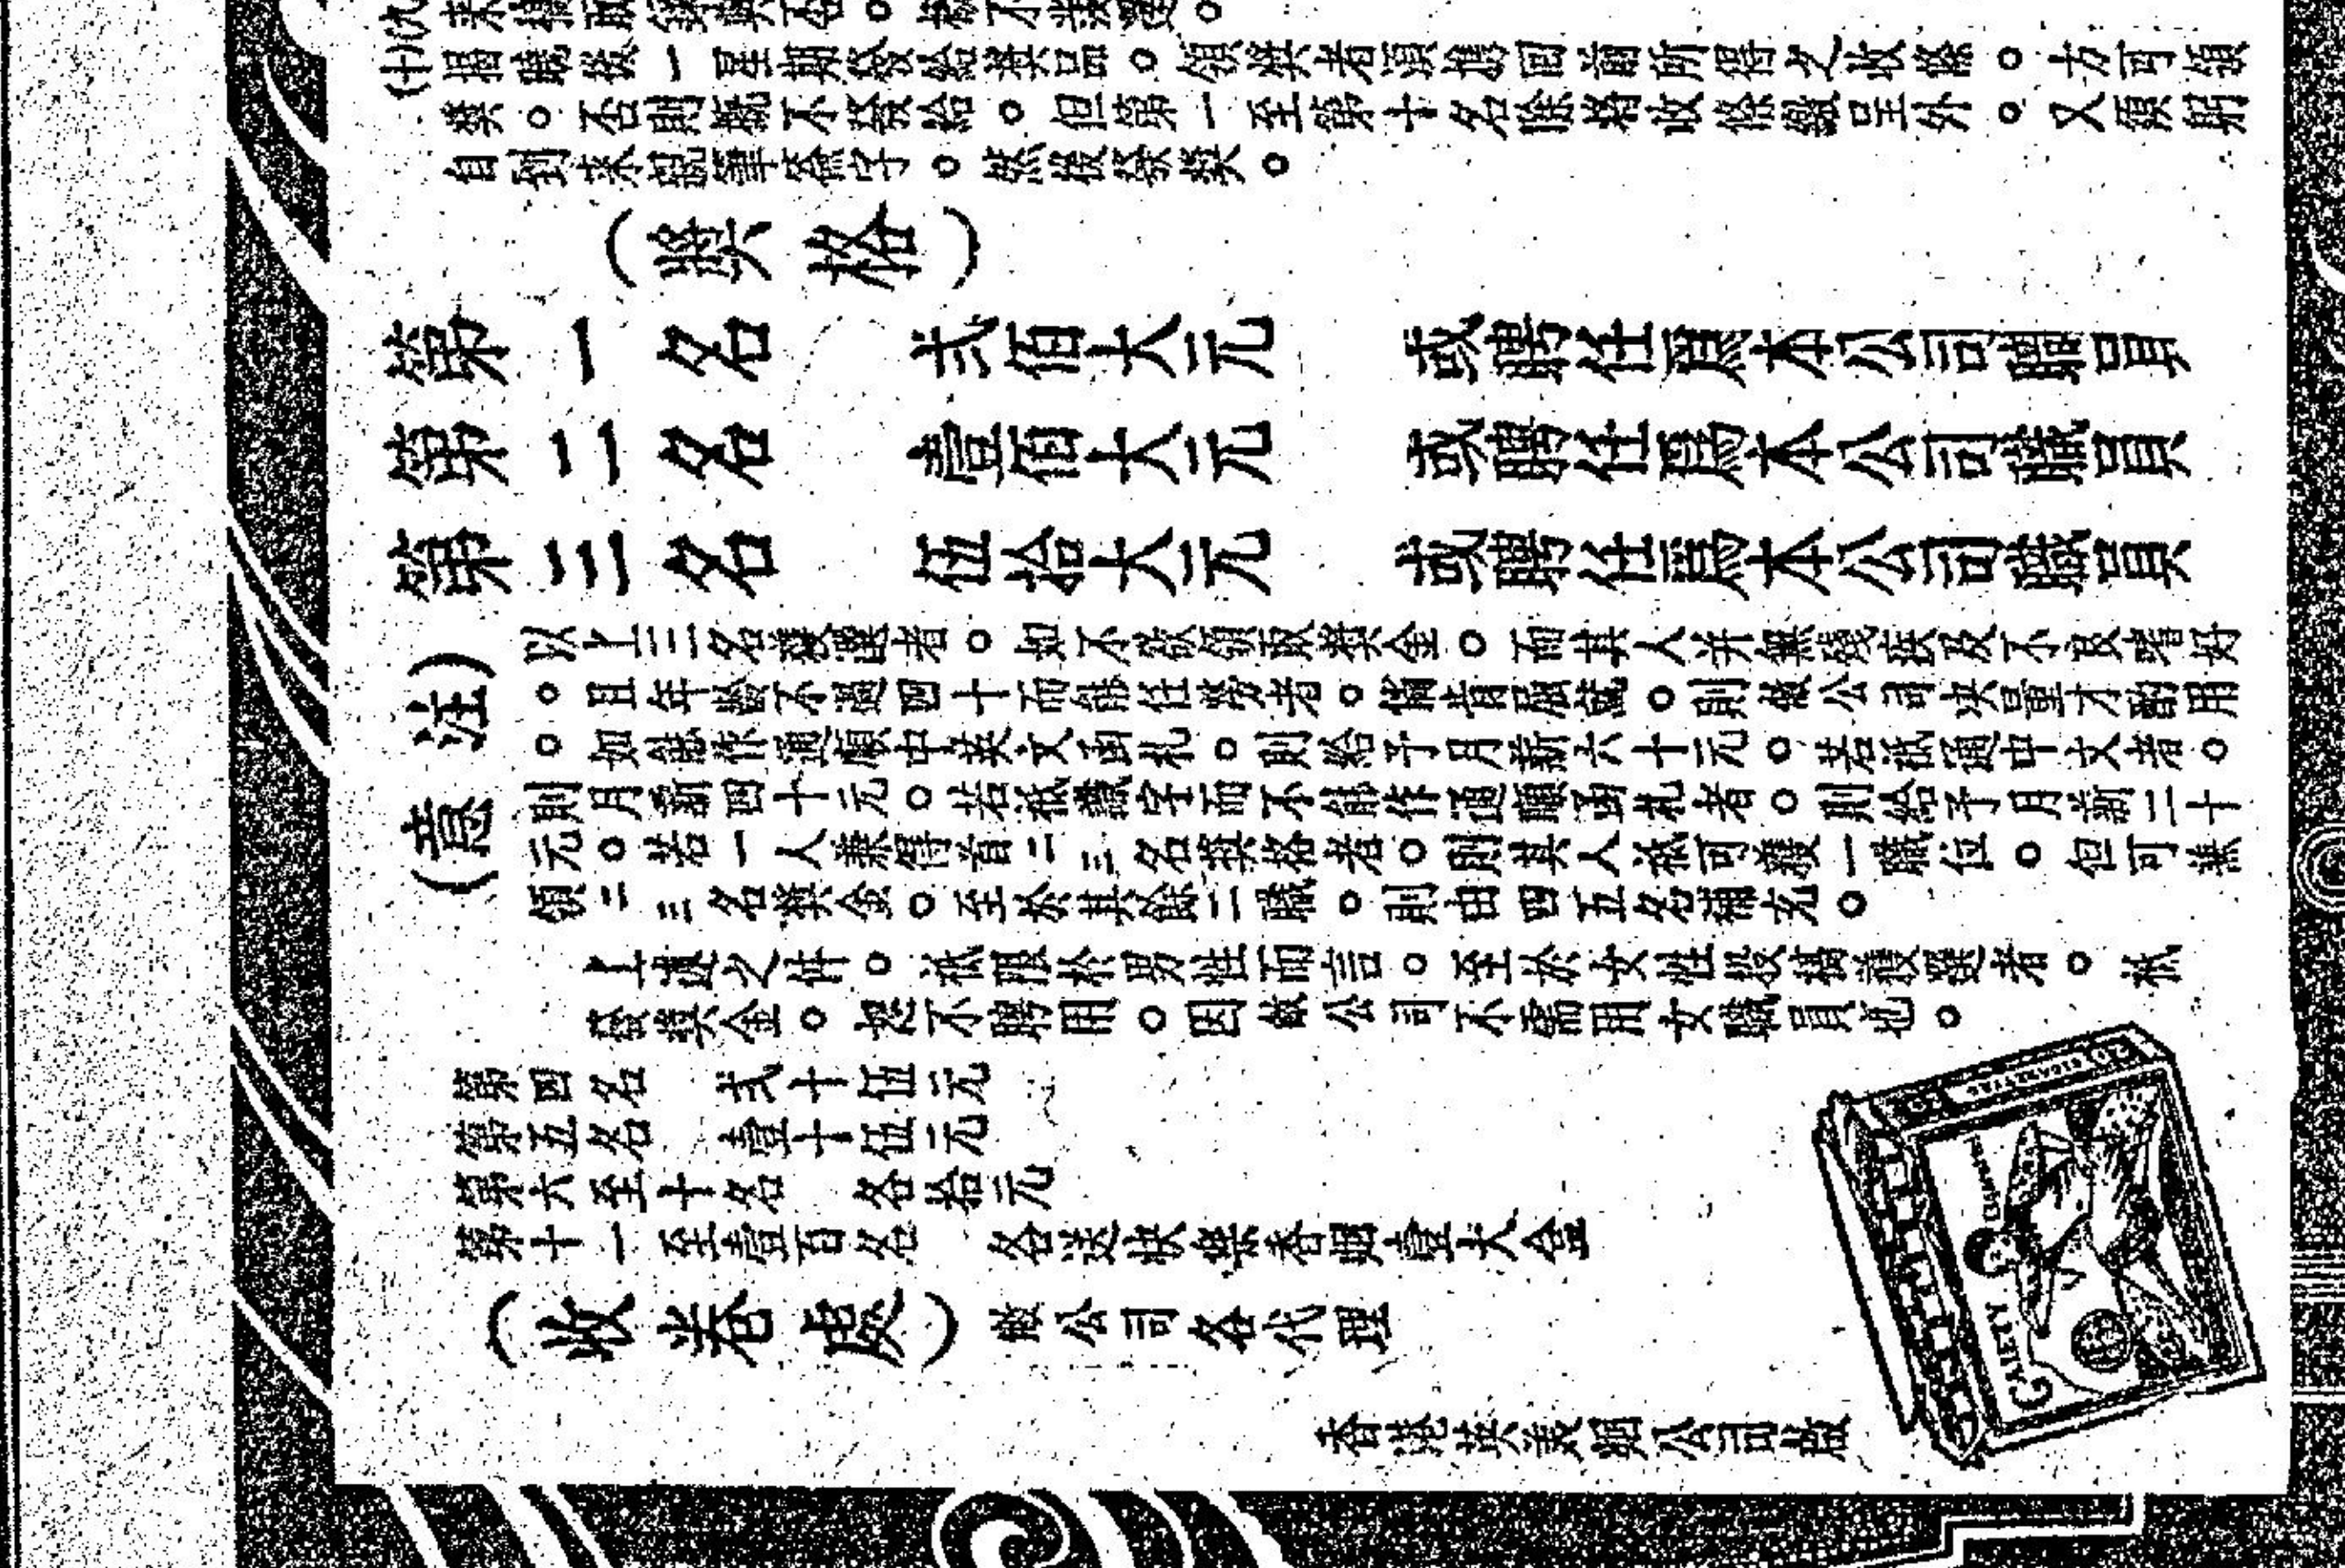 揭曉後一星期發給獎品。領獎者須携回前所得之收條。方可領
獎。否則概不發給。但第一至第十名除將收條繳呈外。又須親
自到來親筆簽字。然後發獎。
(獎格)
第一名 弍佰大元 或聘任為本公司職員
第二名 壹佰大元 或聘任為本公司職員
第三名 伍拾大元 或聘任為本公司職員
(注意)
以上三名獲選者。如不欲領取獎金。而其人并無殘疾及不良嗜好
。且年齡不過四十而能任勞者。倘肯屈就。則敝公司決量才酌用
。如能作通順中英文函札。則給予月薪六十元。若祇通中文者。
則月薪四十元。若祇識字而不能作通順函札者。則給予月薪二十
元。若一人兼得首二三名獎格者。則其人祇可獲一職位。但可兼
領二三名獎金。至於其餘二職。則由四五名補充。
上述之件。祇限於男性而言。至於女性投稿獲選者。祇
發獎金。恕不聘用。因敝公司不需用女職員也。
第四名 弍十伍元
第五名 壹十伍元
第六至十名 各拾元
第十一至壹百名 各送 煙壹大盒
(收卷處) 敝公司各代理
香港 煙公司啟
20 CIGARETTES 20
GAIETY